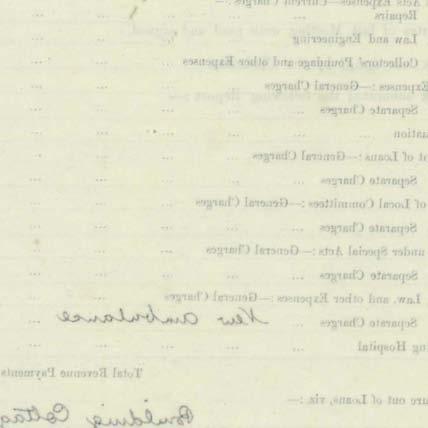 Acts Expenses—Current Charges :—
Repairs ... ... ...
Law and Engineering ... ... ...
Collectors' Poundage and other Expenses ... ...
Expenses :—General Charges ... ... ...
Separate Charges ... ... ... ...
uation ... ... ... ... ...
t of Loans :—General Charges ... ... ...
Separate Charges ... ... ... ...
of Local Committees :—General Charges ... ...
Separate Charges ... ... ... ...
under Special Acts :—General Charges ... ...
Separate Charges ... ... ... ...
Law, and other Expenses :—General Charges ... ...
Separate Charges ... New Ambulance ...
ng Hospital ... ... ... ... ...
Total Revenue Payments
ure out of Loans, viz :—
Building Cottag